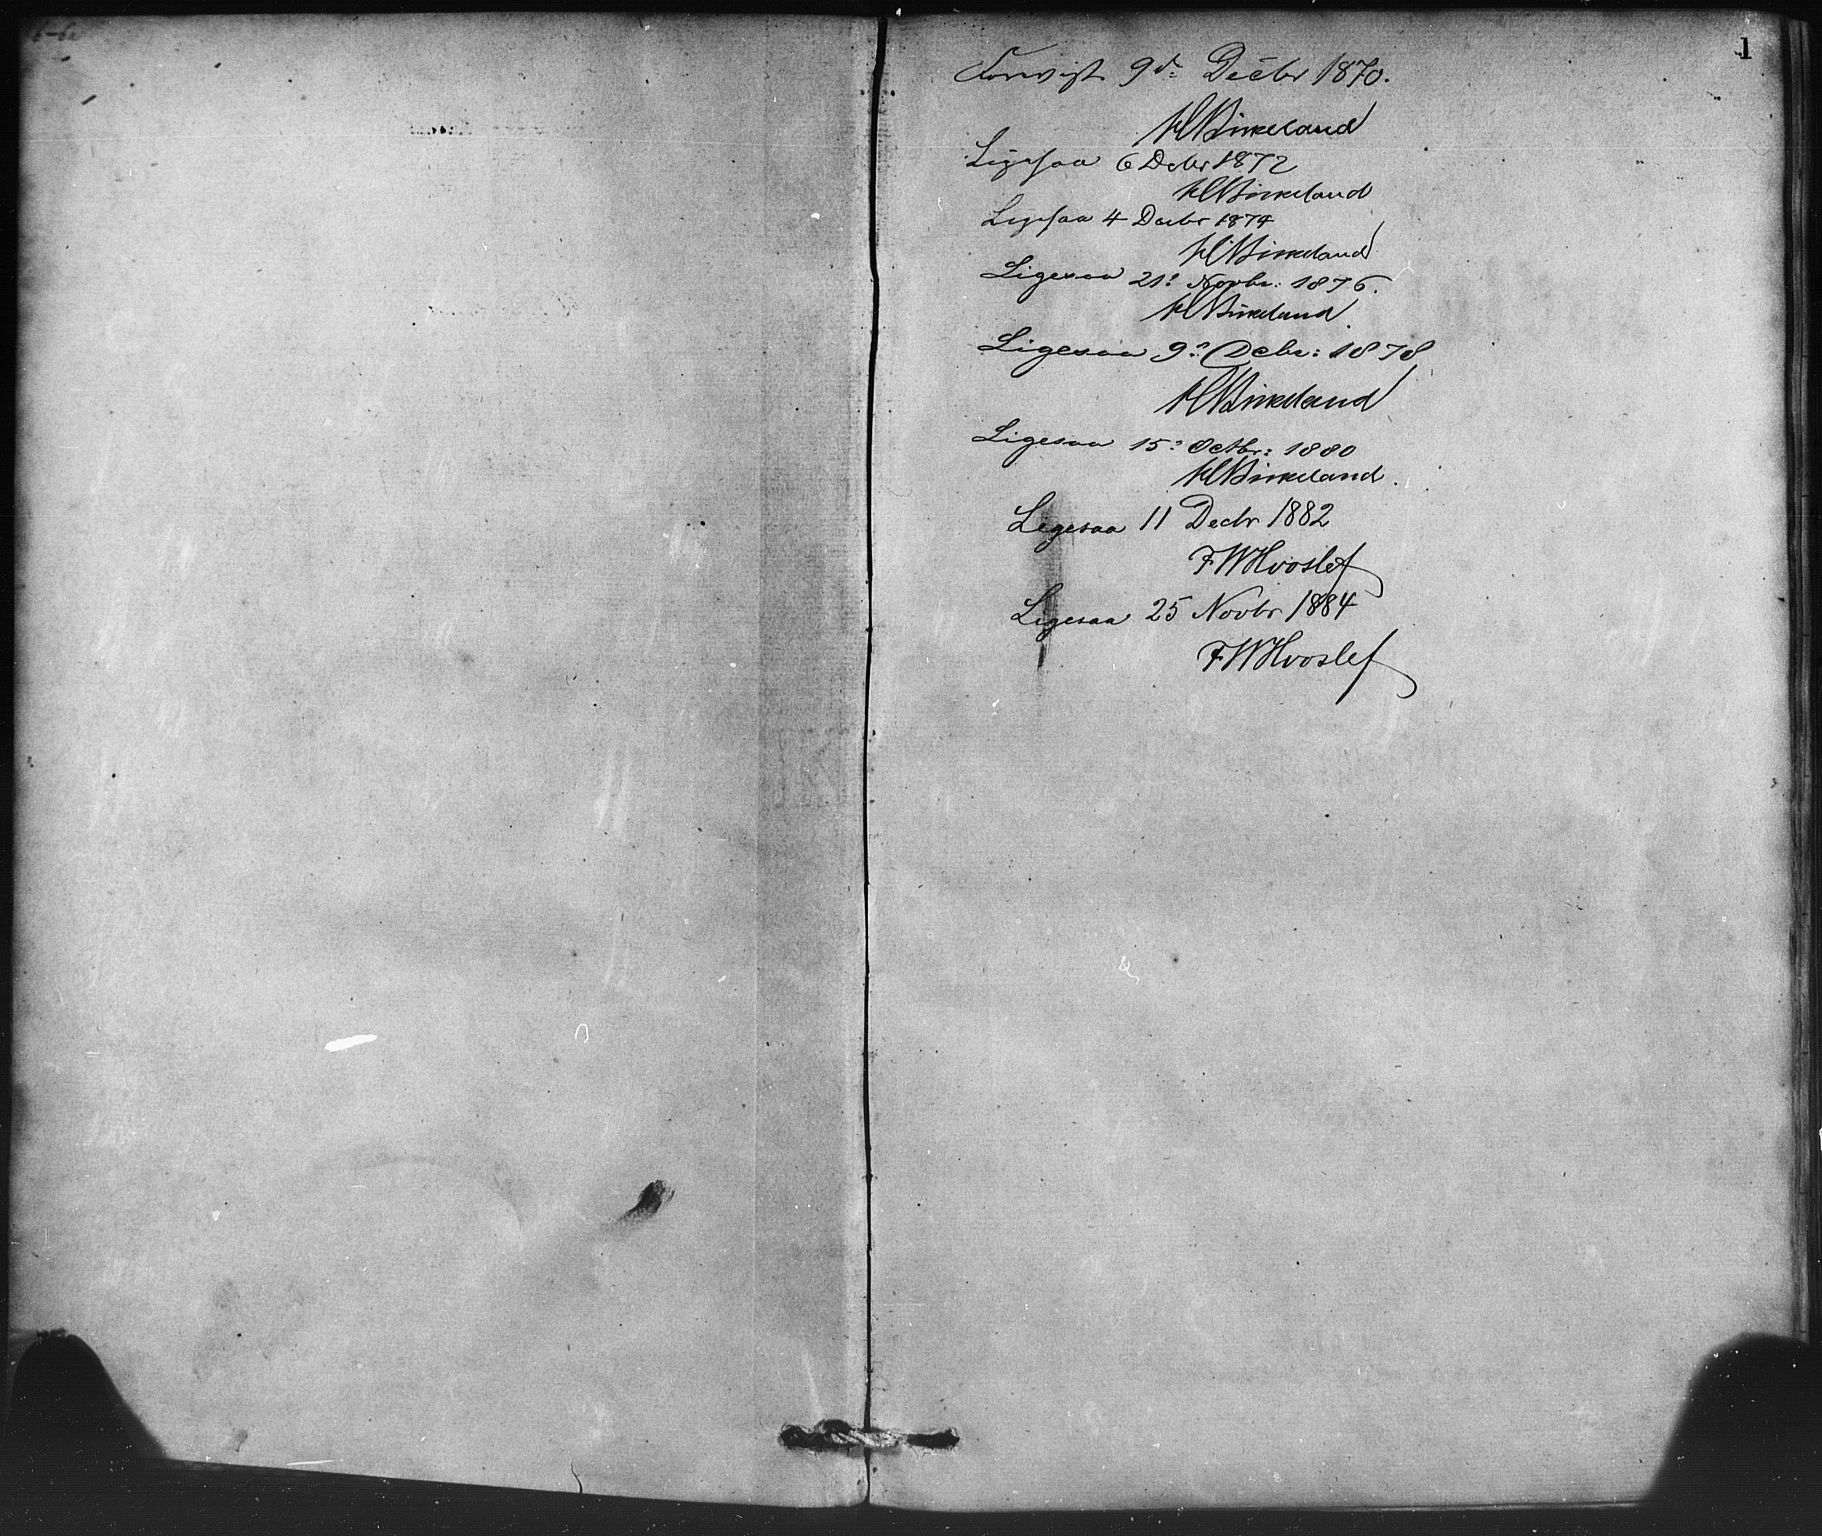 1
Forevist 9de Decbr 1870.
HBirkeland
Ligesaa 6 Decbr 1872
HBirkeland
Ligesaa 4 Decbr 1874
HBirkeland
Ligesaa 21: Novbr: 1876.
HBirkeland
Ligesaa 9: Decbr: 1878
HBirkeland
Ligesaa 15: Octbr: 1880
HBirkeland.
Ligesaa 11 Decbr 1882
FWHvoslef
Ligesaa 25 Novbr 1884
FWHvoslef